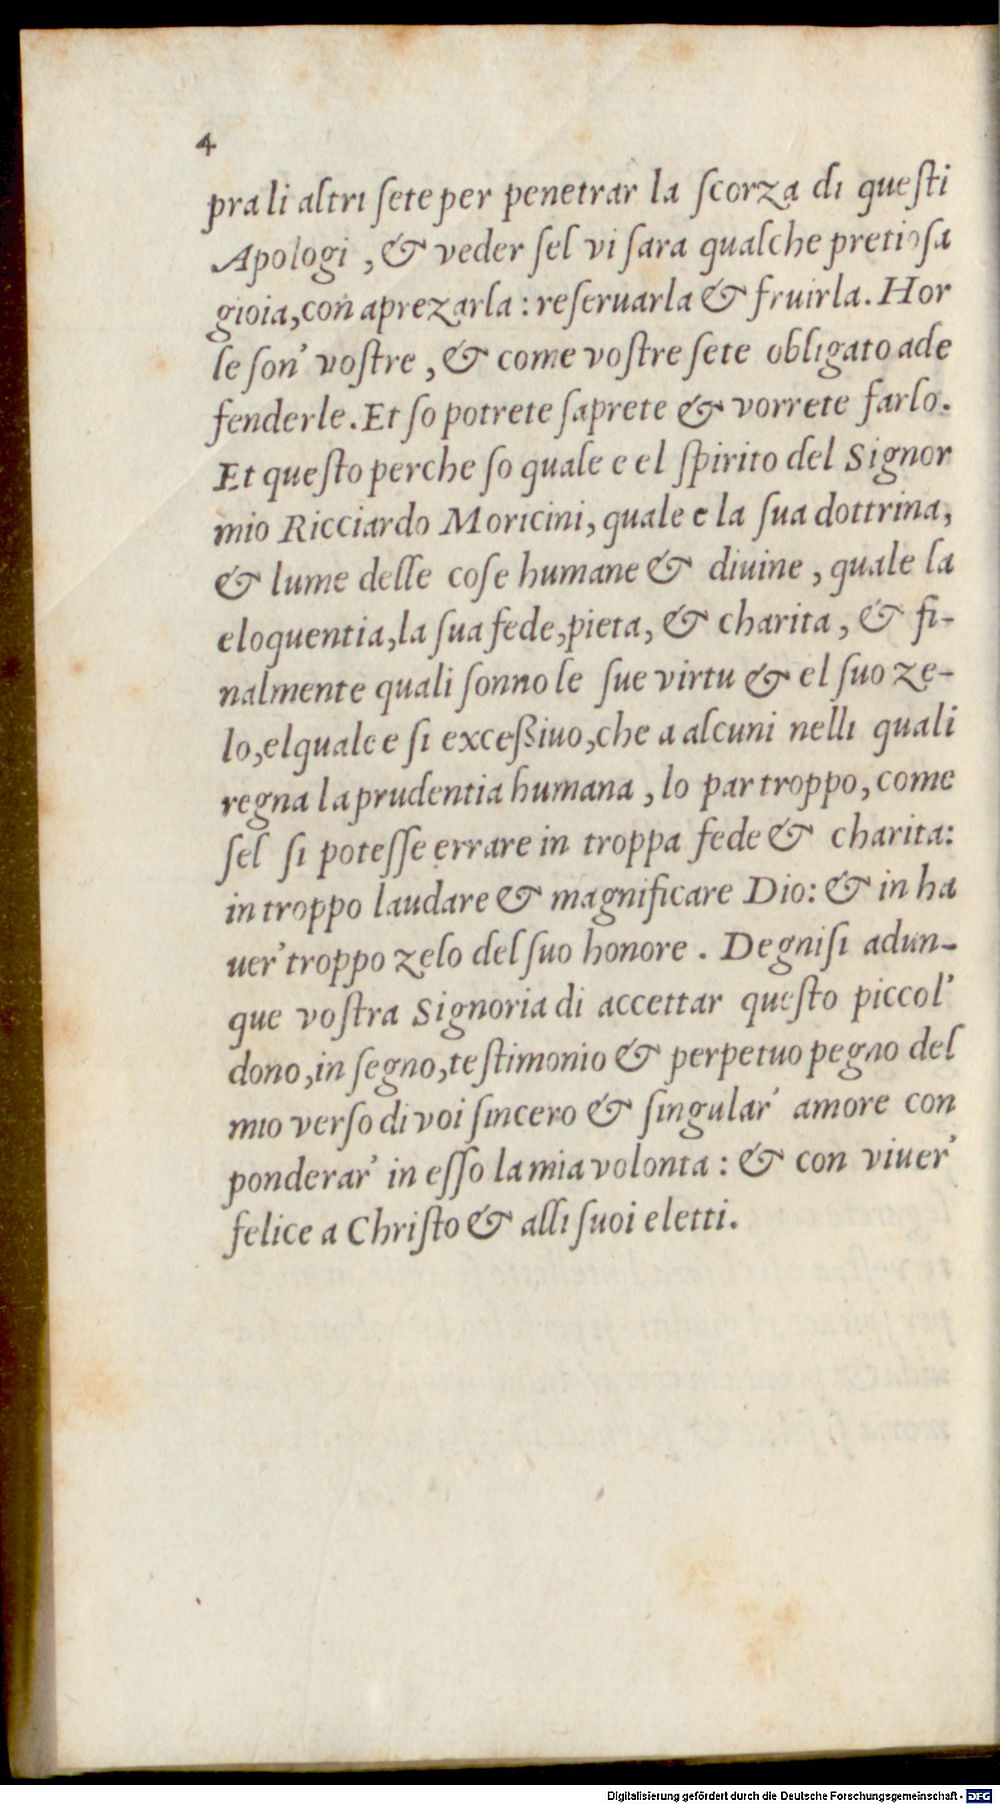 4
pra li altri ſete per penetrar la ſcorza di queſti
Apologi , & veder ſel vi ſara qualche pretioſa
gioia, con aprezarla : reſeruarla & fruirla. Hor
le ſon' voſtre , & come voſtre ſete obligato ade
fenderle. Et ſo potrete ſaprete & vorrete farlo.
Et queſto perche ſo quale e el ſpirito del Signor
mio Ricciardo Moricini, quale e la ſua dottrina,
& lume delle coſe humane & diuine , quale la
eloquentia, la ſua fede, pieta, & charita , & fi-
nalmente quali ſonno le ſue virtu & el ſuo ze-
lo, elquale e ſi exceßiuo, che a alcuni nelli quali
regna la prudentia humana , lo par troppo, come
ſel ſi poteſſe errare in troppa fede & charita:
in troppo laudare & magnificare Dio: & in ha
uer' troppo zelo del ſuo honore . Degniſi adun-
que voſtra Signoria di accettar queſto piccol'
dono, in ſegno, teſtimonio & perpetuo pegno del
mio verſo di voi ſincero & ſingular' amore con
ponderar' in eſſo la mia volonta : & con viuer'
felice a Chriſto & alli ſuoi eletti.
Digitalisierung gefördert durch die Deutsche Forschungsgemeinschaft - DFG